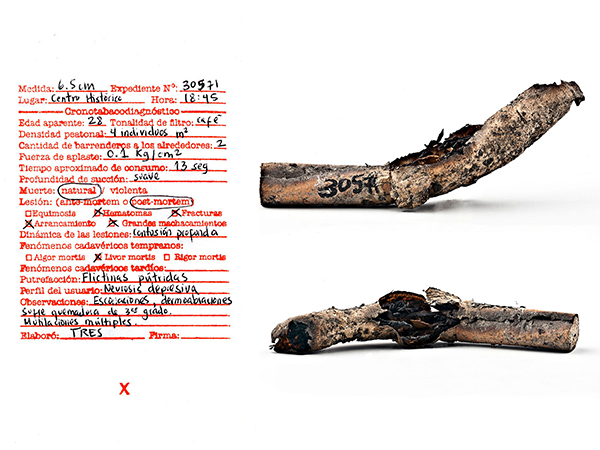 Medida: 6.5cm Expediente Nº: 30571
Lugar: Centro Histórico Hora: 18:45
Cronotabacodiagnóstico
Edad aparente: 28 Tonalidad de filtro: café
Densidad peatonal: 4 individuos m²
Cantidad de barrenderos a los alrededores: 2
Fuerza de aplaste: 0.1 Kg/cm²
Tiempo aproximado de consumo: 13 seg
Profundidad de succión: suave
Muerte: natural / violenta
Lesión: (ante-mortem o post-mortem)
Equimosis Hematomas Fracturas
Arrancamiento Grandes machacamientos
Dinámica de las lesiones: contusión profunda
Fenómenos cadavéricos tempranos:
Algor mortis Livor mortis Rigor mortis
Fenómenos cadavéricos tardíos:
Putrefacción: Flictinas pútridas
Perfil del usuario: Neurosis depresiva
Observaciones: Escoriaciones, dermoabraciones
Sufre quemadura de 3er grado.
Mutilaciones múltiples.
Elaboró: TRES Firma:
X
3057